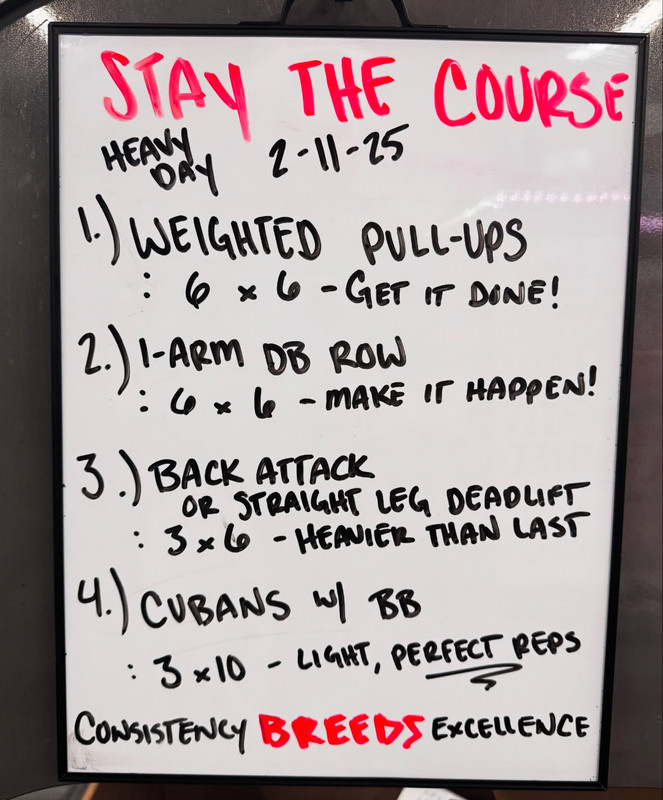 STAY THE COURSE
HEAVY DAY 2-11-25
1.) WEIGHTED PULL-UPS
: 6 x 6 - GET IT DONE!
2.) 1-ARM DB ROW
: 6 x 6 - MAKE IT HAPPEN!
3.) BACK ATTACK
OR STRAIGHT LEG DEADLIFT
: 3 x 6 - HEAVIER THAN LAST
4.) CUBANS W/ BB
: 3 x 10 - LIGHT, PERFECT REPS
CONSISTENCY BREEDS EXCELLENCE